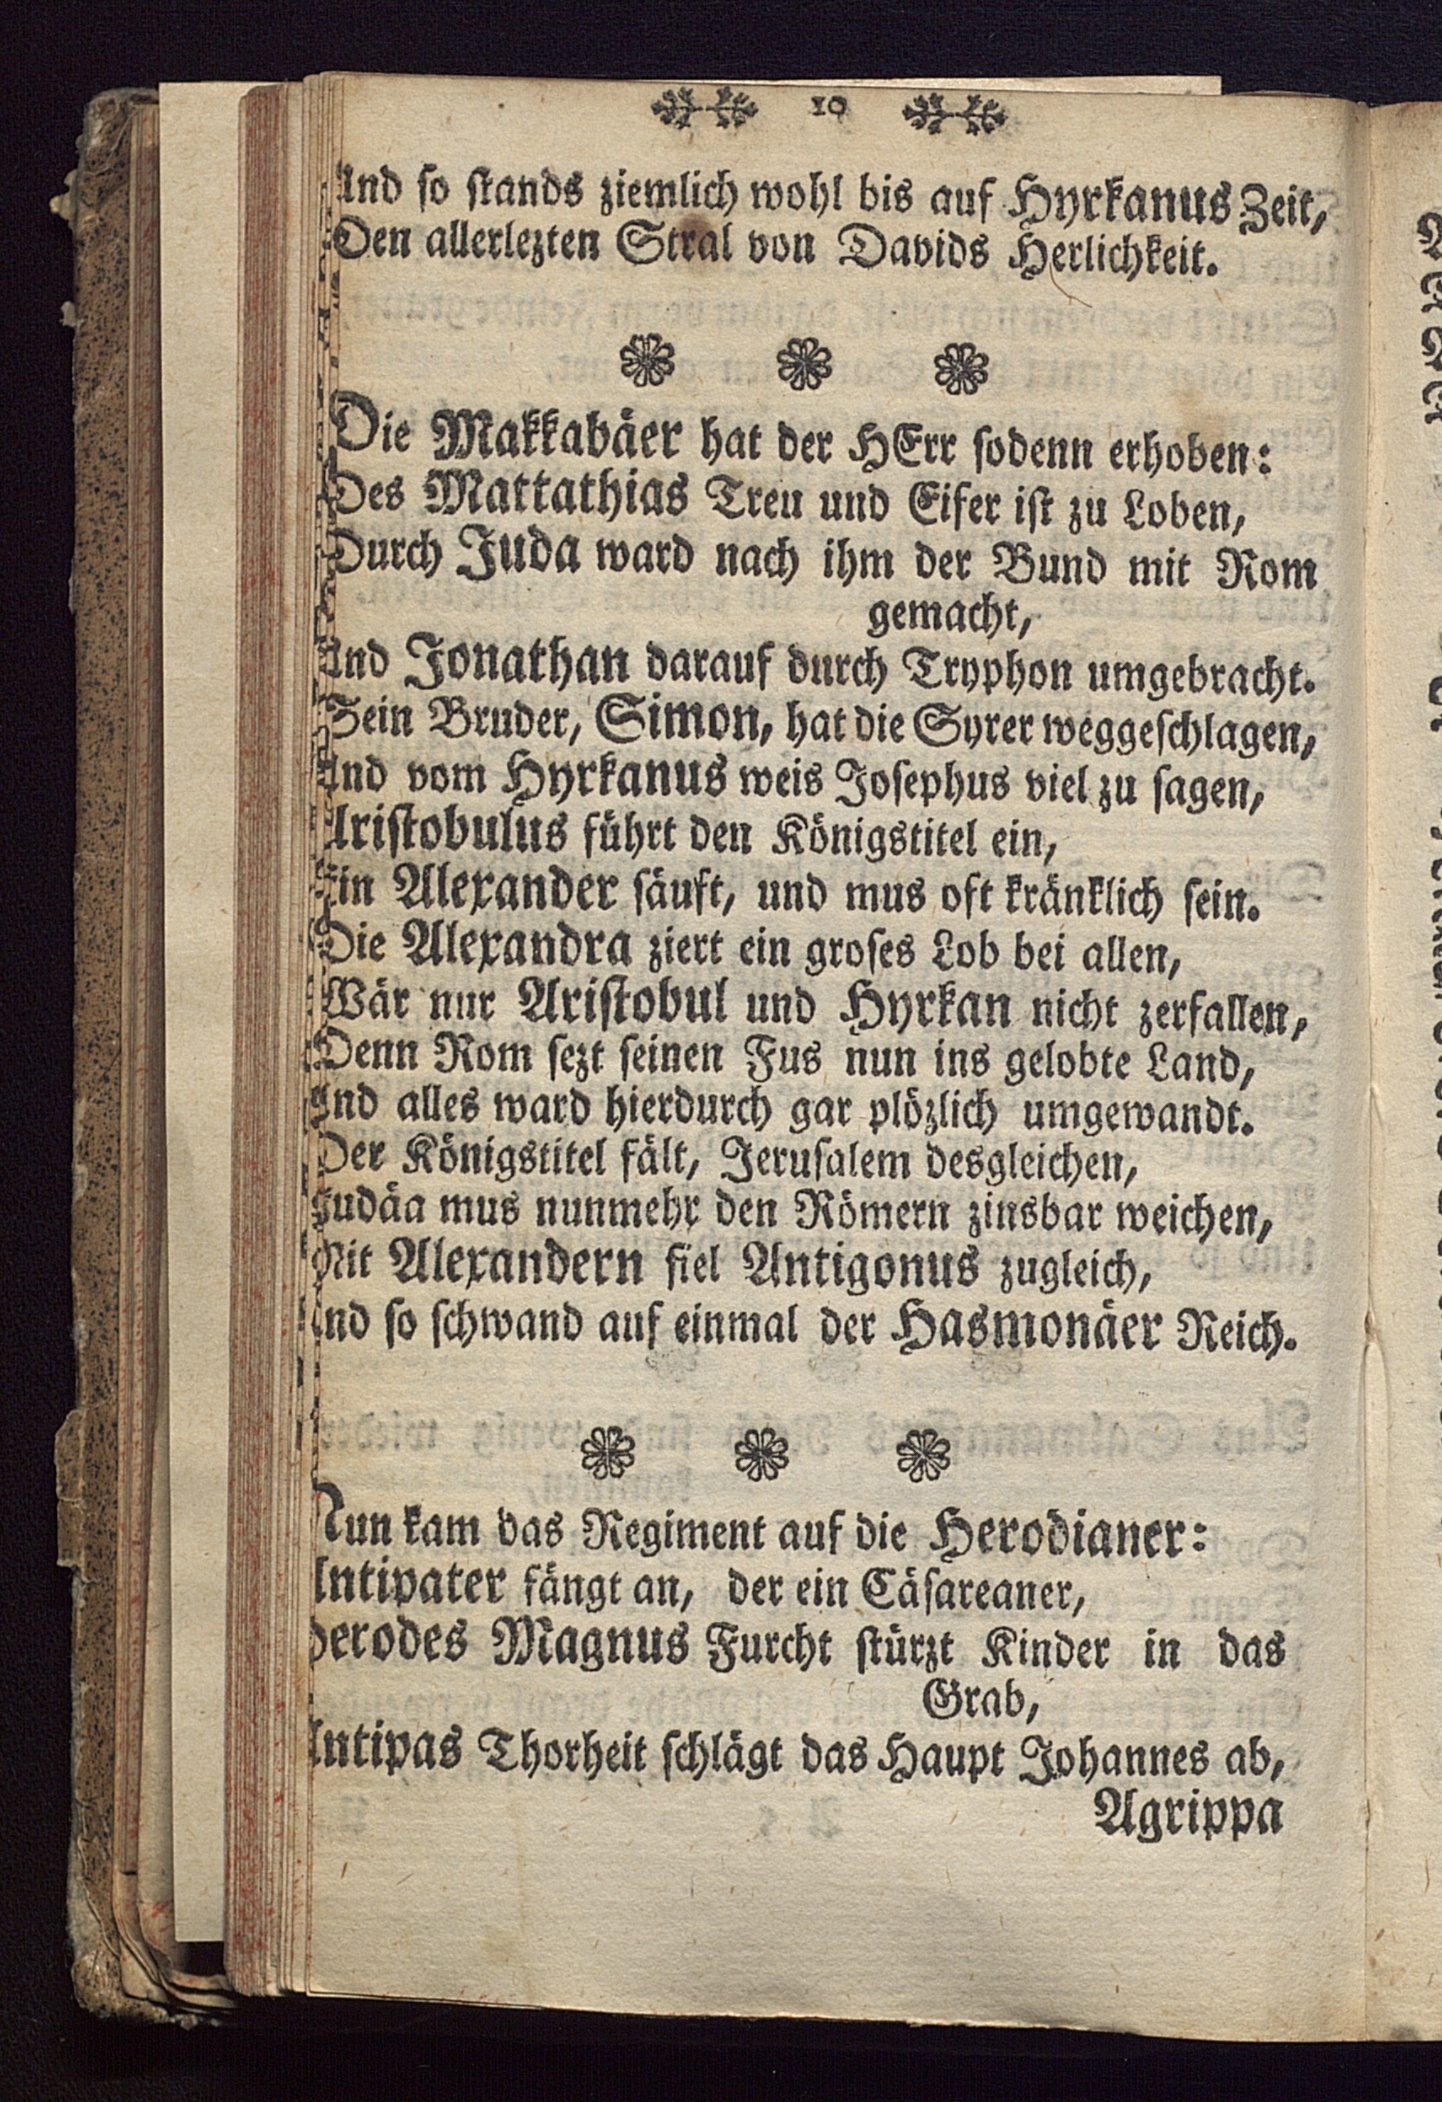 10
Und so stands ziemlich wohl bis auf Hyrkanus Zeit,
Den allerlezten Stral von Davids Herlichkeit.
Die Makkabäer hat der HErr sodenn erhoben:
Des Mattathias Treu und Eifer ist zu Loben,
Durch Juda ward nach ihm der Bund mit Rom
gemacht,
Und Jonathan darauf durch Tryphon umgebracht.
Sein Bruder, Simon, hat die Syrer weggeschlagen,
Und vom Hyrkanus weis Josephus viel zu sagen,
Aristobulus führt den Königstitel ein,
Ein Alexander säuft, und mus oft kränklich sein.
Die Alexandra ziert ein groses Lob bei allen,
Wär nur Aristobul und Hyrkan nicht zerfallen,
Denn Rom sezt seinen Fus nun ins gelobte Land,
Und alles ward hierdurch gar plözlich umgewandt.
Der Königstitel fält, Jerusalem desgleichen,
Judäa mus nunmehr den Römern zinsbar weichen,
Mit Alexandern fiel Antigonus zugleich,
Und so schwand auf einmal der Hasmonäer Reich.
Nun kam das Regiment auf die Herodianer:
Antipater fängt an, der ein Cäsareaner,
Herodes Magnus Furcht stürzt Kinder in das
Grab,
Antipas Thorheit schlägt das Haupt Johannes ab,
Agrippa